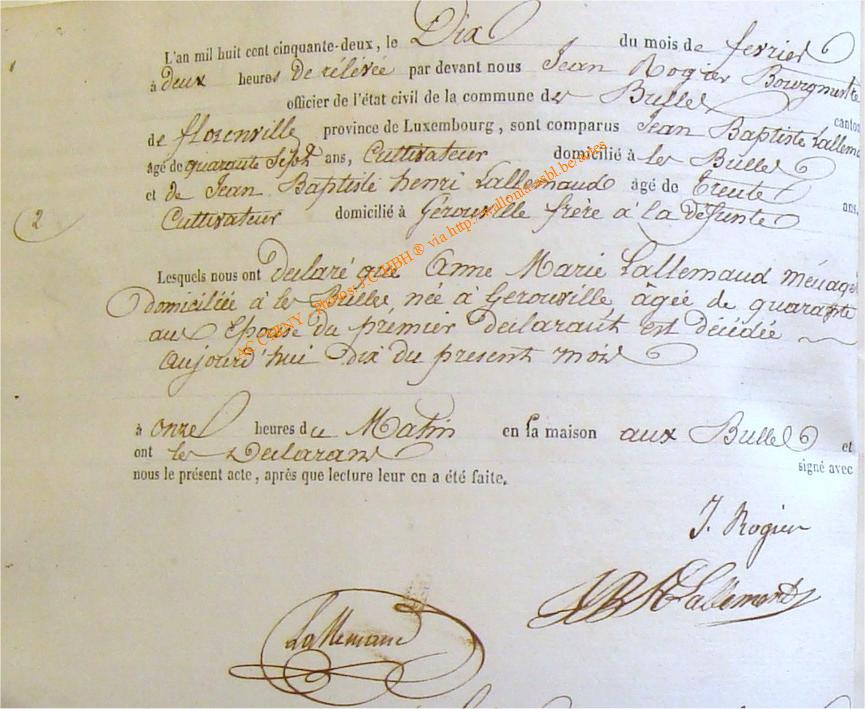 L'an mil huit cent cinquante-deux, le Dix du mois de fevrier
à deux heures de rélévée par devant nous Jean Rogier Bourgmestre
officier de l'état civil de la commune des Bulles canton
de florenville province de Luxembourg, sont comparus Jean Baptiste Lallem
âgé de quarante sept ans, Cultivateur domicilié à les Bulles
et de Jean Baptiste henri Lallemand âgé de trente ans,
2 Cultivateur domicilié à Gérouville frère à la défunte
Lesquels nous ont declaré que Anne Marie Lallemand ménag
domiciliée à les Bulles née à Gerouville âgée de quarante
ans Epouse du premier declarant est décédée
aujourd'hui dix du present mois
à onze heures du Matin en la maison aux Bulles et
ont les Declarans signé avec
nous le présent acte, après que lecture leur en a été faite.
J. Rogier
JBH Lallemand
Lallemand
via http://wallonia.asbl.be